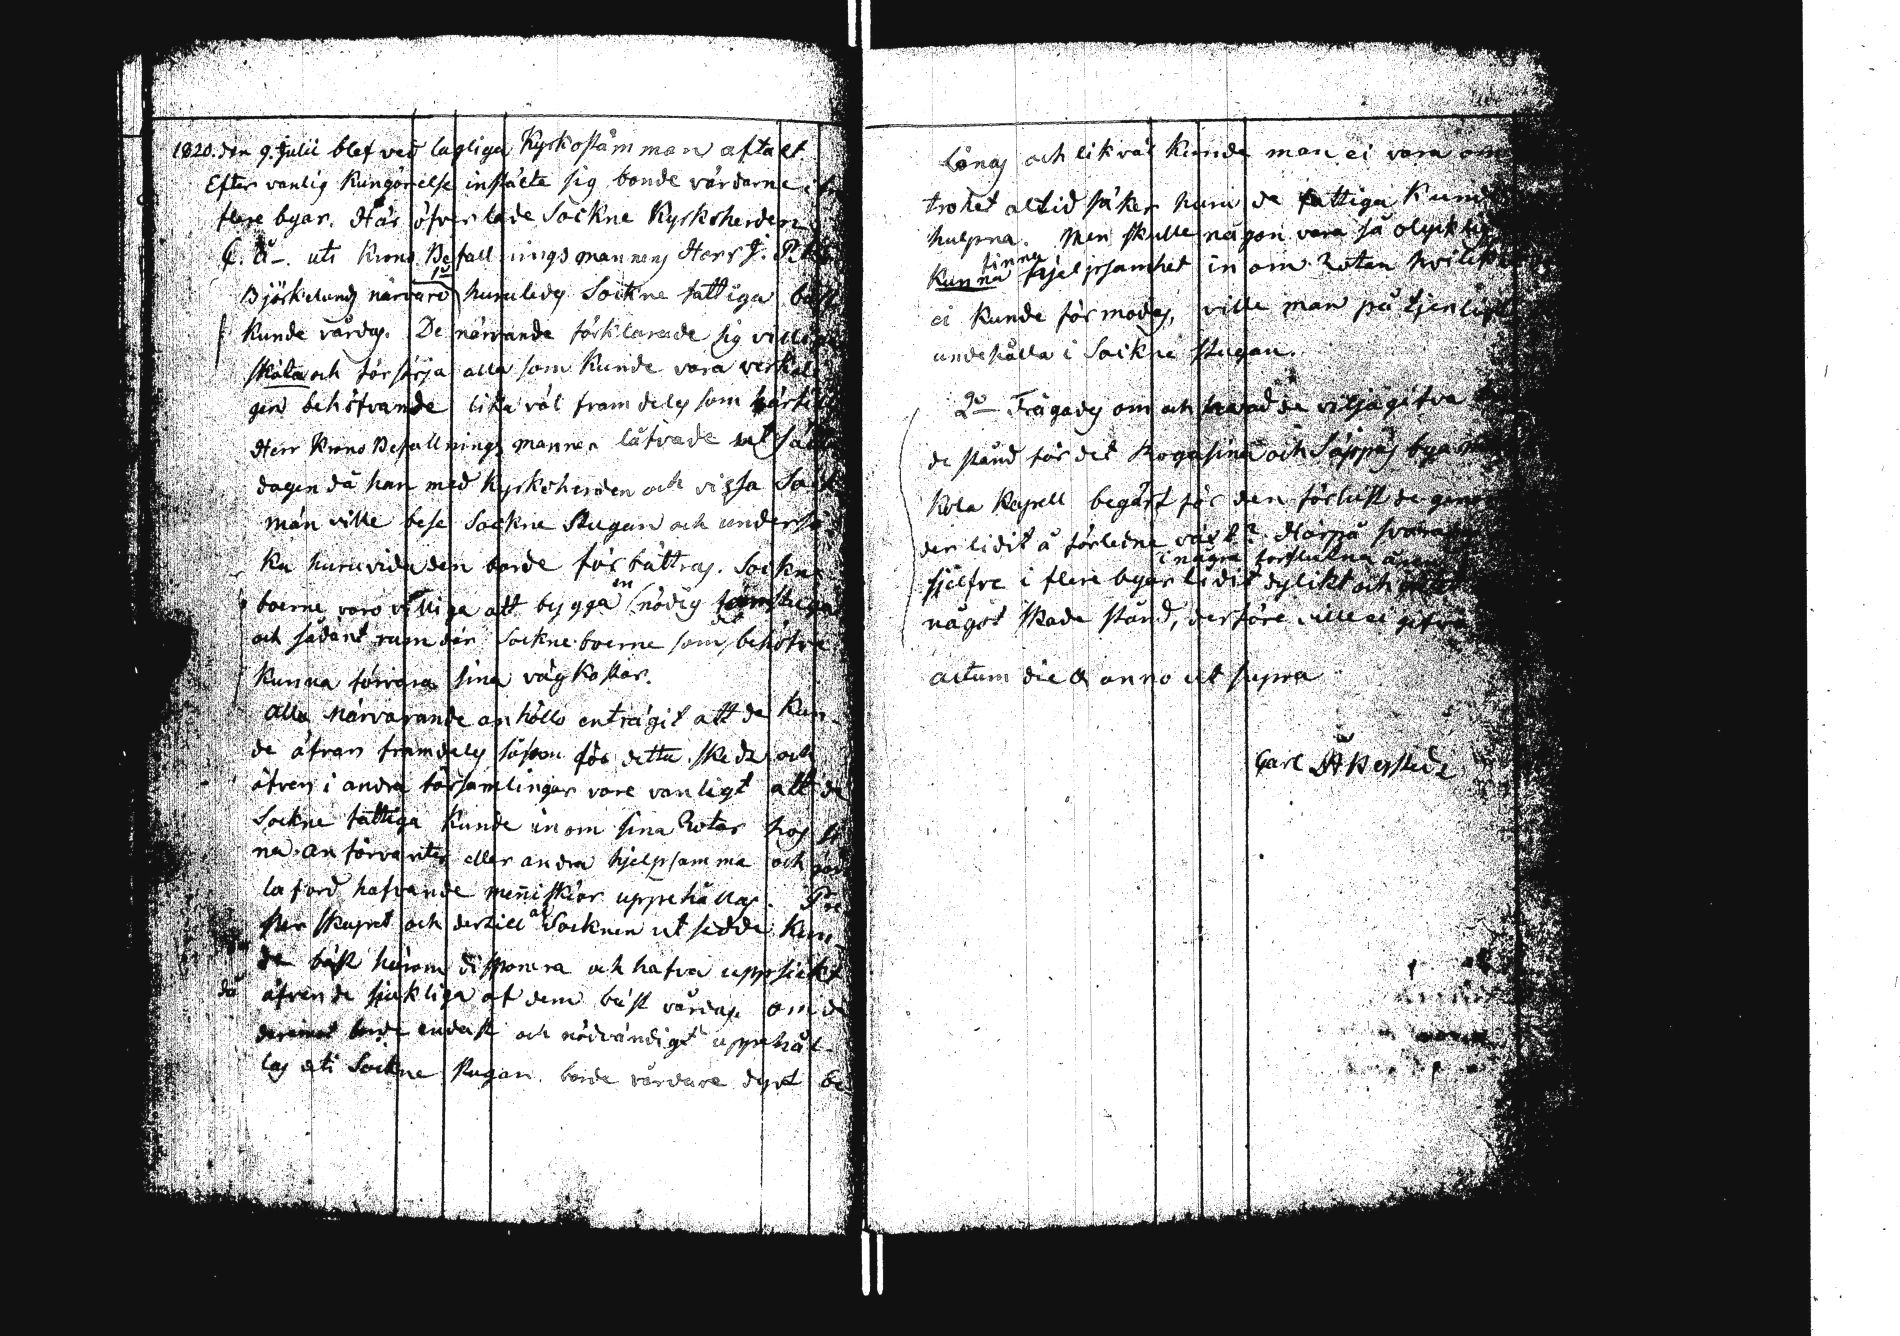 1820. den 9. Julii blef ved lagliga Kyrkostämman aftalt.
Efter vanlig Kungörelse instälte sig bonde värdarne i
flere byar. Här öfverlade Sockne Kyrkoherden
C. Å-. uti Krono Befallningsmannens Herr J.
Björkelunds närvaro 1o huruledes Sockne fattiga
Kunde vårdas. De närvande förklarade sig villiga
sköta och försörja alla som Kunde vara verkeli
gen behöfvande lika väl framdeles som härtill
Herr Krono Befallnings mannen låfvade
dagen då han med Kyrkoherden och vissa Sock
män ville bese Sockne Stugan och undersö
ka huruvida den borde förbättras. Sockne
boerne voro villiga att bygga en nödig
och sådant rum der Sockneboerne som det behöfva
Kunna förvara sina vägkostar.
Alla närvarande anhöllo enträgit att de Kun-
de äfven framdeles såsom för detta skedt och
äfven i andra församlingar vore vanligt att de
Sockne fattiga Kunde inom sina Rotar hos si
na anförvanter eller andra hjelpsamma och god
la ford hafvande meñiskior uppehållas. Pre
sterskapet och dertill af Socknen utsedde Kun-
de bäst härom disponera och hafva uppsickt
då äfven de sjukliga af dem bäst vårdas om de
endast och nödvändigt uppehål-
las uti Sockne Stugan. borde vårdare dyrt be
lönas och likväl Kunde man ei vara om
trohet altid säker huru de fattiga Kund
hulpna. Men skulle någon vara så olycklig
Kunna finna hjelpsamhet inom Roten hvilket
ei Kunde förmodas, ville man på tjenligt
undehålla i Sockne stugan.
2o Frågades om och hvad de vilja gifva
de stånd för det Rogasina och Säppäs byar
Kola Kapell begärt för den förlust de genom
den lidit å förledne växt? Härpå svarade
i några förflutna åren
sjelfve i flere byar lidit dylikt och
något skade stånd, derföre ville ei gifva
actum die & anno ut supra
Carl Åkerstedt